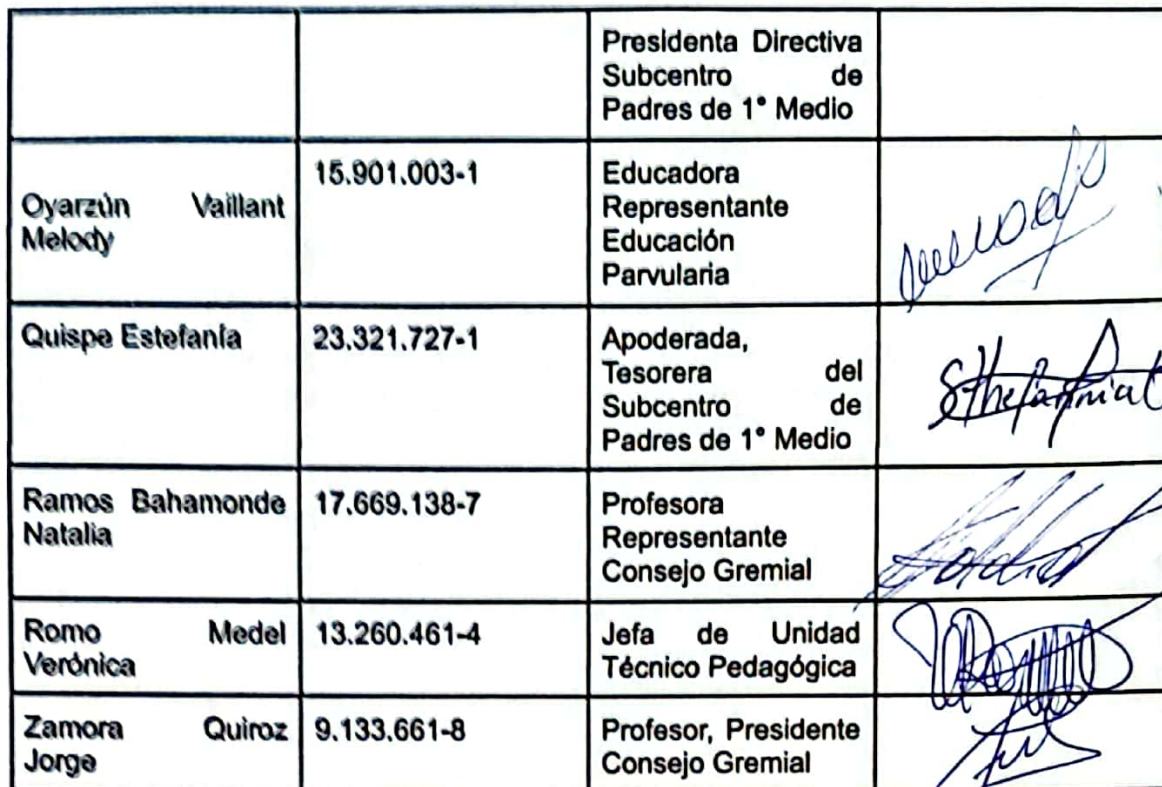 Presidenta Directiva
Subcentro de
Padres de 1° Medio
Oyarzún Vaillant
Melody
15.901.003-1
Educadora
Representante
Educación
Parvularia
Quispe Estefanía
23.321.727-1
Apoderada,
Tesorera del
Subcentro de
Padres de 1° Medio
Ramos Bahamonde
Natalia
17.669.138-7
Profesora
Representante
Consejo Gremial
Romo Medel
Verónica
13.260.461-4
Jefa de Unidad
Técnico Pedagógica
Zamora Quiroz
Jorge
9.133.661-8
Profesor, Presidente
Consejo Gremial